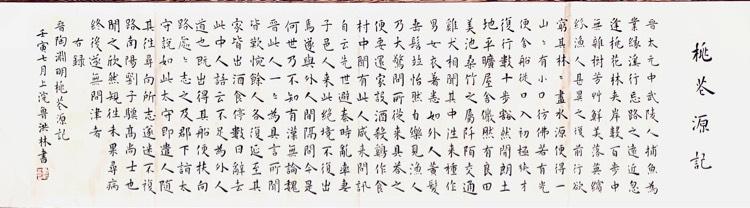 桃花源記
晋太元中武陵人捕魚為
業緣溪行忘路之遠近忽
逢桃花林夹岸數百步中
無雜樹芳艸鮮美落英繽
纷漁人甚異之復前行欲
窮其林〻盡水源便得一
山〻有小口仿佛若有光
便舍船從口入初極狭才
復行數十步豁然開朗土
地平曠屋舍儼然有良田
美池桑竹之屬阡陌交通
雞犬相聞其中往来種作
男女衣着悉如外人黄髮
垂髫並怡然自樂見漁人
乃大驚問所從来具荅之
便要還家設酒殺雞作食
村中聞有此人咸来問訊
自云先世避秦時亂率妻
子邑人来此絶境不復出
焉遂與外人間隔問今是
何世乃不知有漢無論魏
晋此人一〻為具言所聞
皆歎惋餘人各復延至其
家皆出酒食停數日辭去
此中人語云不足為外人
道也既出得其船便扶向
路處〻志之及郡下詣太
守說如此太守即遣人随
其往尋向所志遂迷不復
路南陽劉子驥高尚士也
聞之欣然規往未果尋病
終後遂無問津者
右録
晋陶淵明桃花源記
壬寅七月上浣魯洪林書